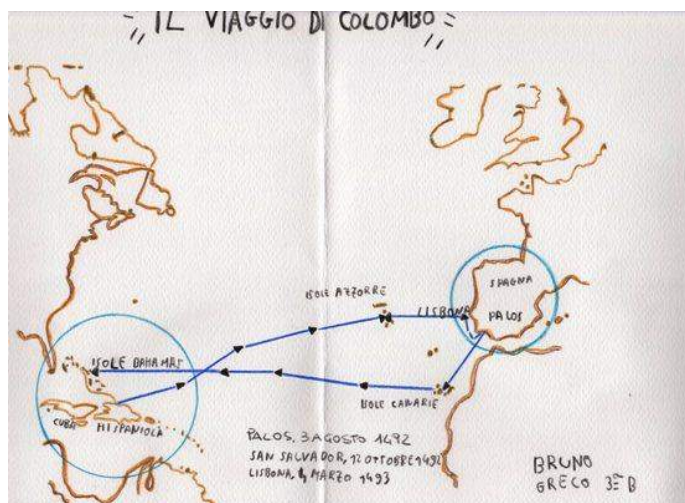 IL VIAGGIO DI COLOMBO
ISOLE AZZORRE
SPAGNA
LISBONA
PALOS
ISOLE BAHAMAS
ISOLE CANARIE
CUBA HISPANIOLA
PALOS, 3 AGOSTO 1492
SAN SALVADOR, 12 OTTOBRE 1492
LISBONA, 4 MARZO 1493
BRUNO
GRECO 3ª B